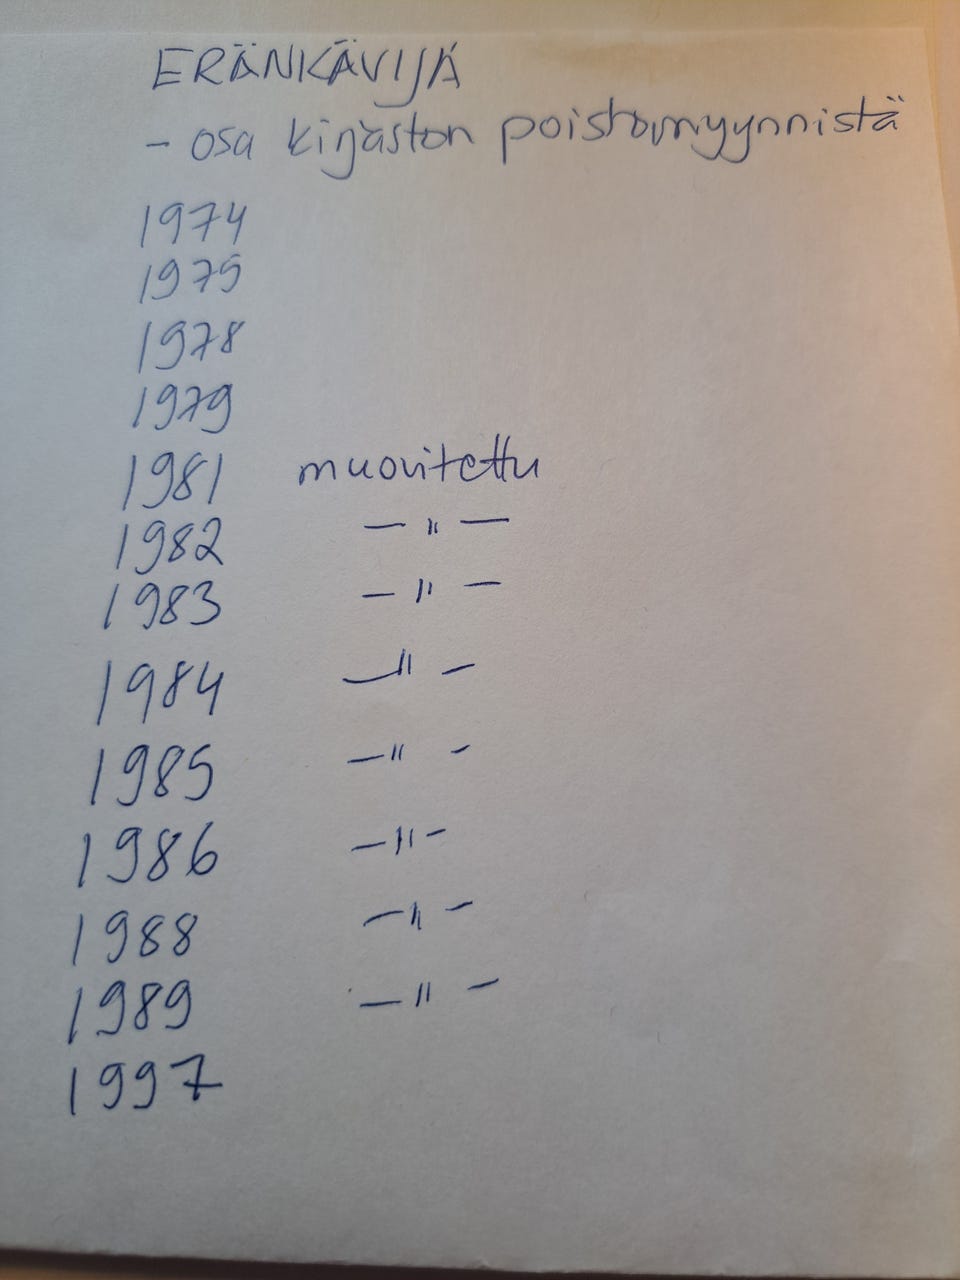 ERÄNKÄVIJÄ
- osa kirjaston poistomyynnistä
1974
1975
1978
1979
1981 muovitettu
1982 — " —
1983 — " —
1984 — " —
1985 — " —
1986 — " —
1988 — " —
1989 — " —
1997